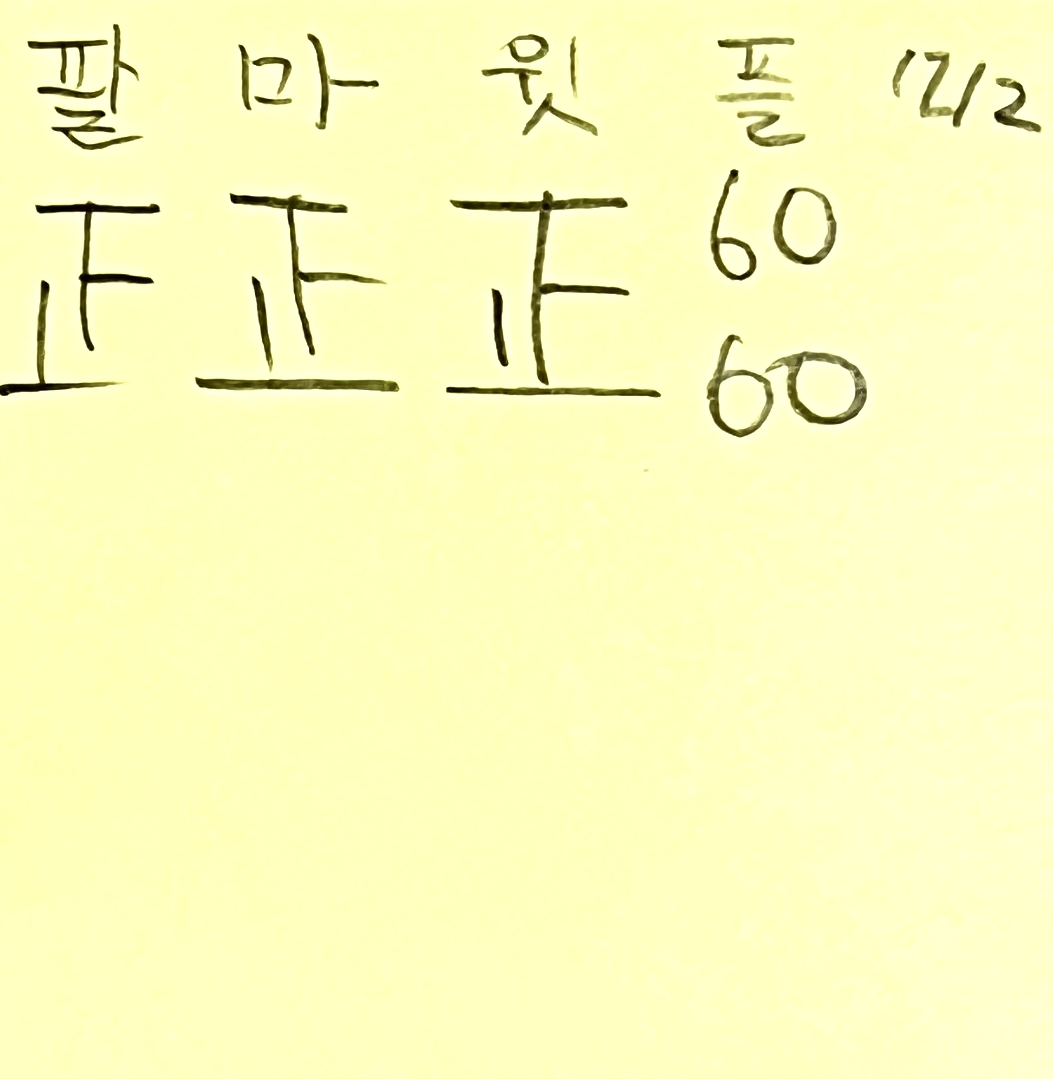 팔 마 윗 플 12/2
正 正 正 60
60